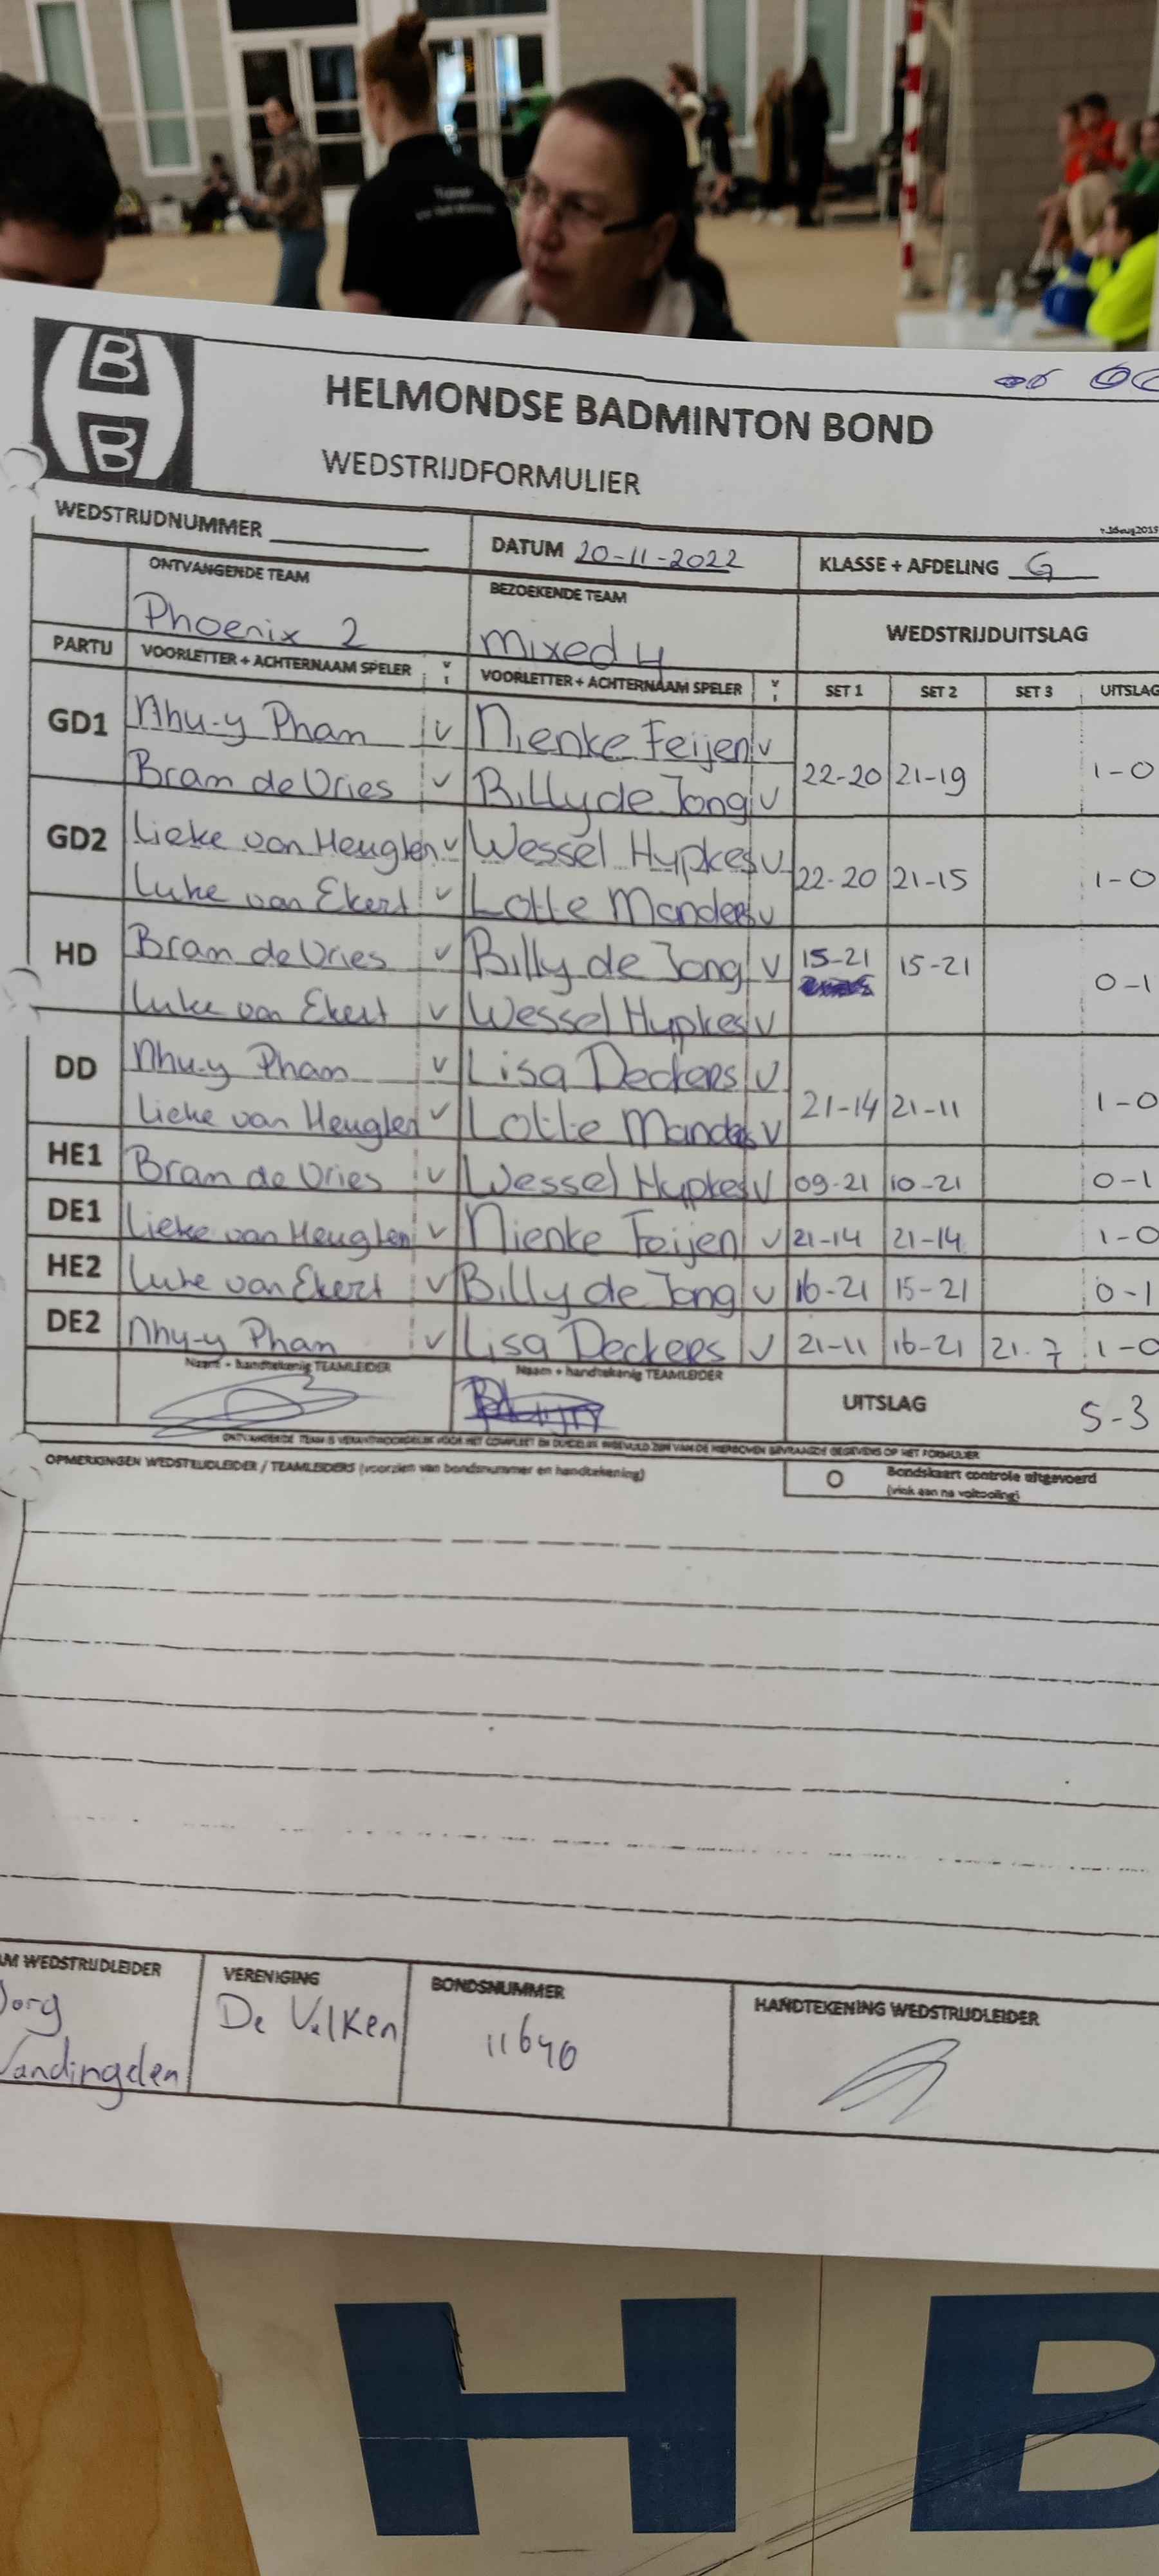 Trainer
B
B
HELMONDSE BADMINTON BOND
WEDSTRIJDFORMULIER
WEDSTRIJDNUMMER
DATUM 20-11-2022
KLASSE + AFDELING G
ONTVANGENDE TEAM
BEZOEKENDE TEAM
WEDSTRIJDUITSLAG
Phoenix 2
mixed 4
PARTIJ VOORLETTER + ACHTERNAAM SPELER V I VOORLETTER + ACHTERNAAM SPELER V I SET 1 SET 2 SET 3 UITSLAG
GD1 Nhu-y Phan v Nienke Feijen v
Bram de Vries v Billy de Jong v 22-20 21-19 1-0
GD2 Lieke van Heugten v Wessel Hypkes v
Luke van Ekert v Lotte Manders v 22-20 21-15 1-0
HD Bram de Vries v Billy de Jong v 15-21 15-21
Luke van Ekert v Wessel Hypkes v 0-1
DD Nhu-y Phan v Lisa Deckers v
Lieke van Heugten v Lotte Manders v 21-14 21-11 1-0
HE1 Bram de Vries v Wessel Hypkes v 09-21 10-21 0-1
DE1 Lieke van Heugten v Nienke Feijen v 21-14 21-14 1-0
HE2 Luke van Ekert v Billy de Jong v 16-21 15-21 0-1
DE2 Nhu-y Phan v Lisa Deckers v 21-11 16-21 21-7 1-0
Naam + handtekenig TEAMLEIDER
Naam + handtekenig TEAMLEIDER
UITSLAG 5-3
ONTVANGENDE TEAM IS VERANTWOORDELIJK VOOR HET COMPLEET EN DUIDELIJK INGEVULD ZIJN VAN DE HIERBOVEN GEVRAAGDE GEGEVENS OP HET FORMULIER
OPMERKINGEN WEDSTRIJDLEIDER / TEAMLEIDERS (voorzien van bondsnummer en handtekening)
O Bondskaart controle uitgevoerd
(vink aan na voltooiing)
AM WEDSTRIJDLEIDER
VERENIGING
BONDSNUMMER
HANDTEKENING WEDSTRIJDLEIDER
Jorg
De Valken
11640
Vandingelen
H B